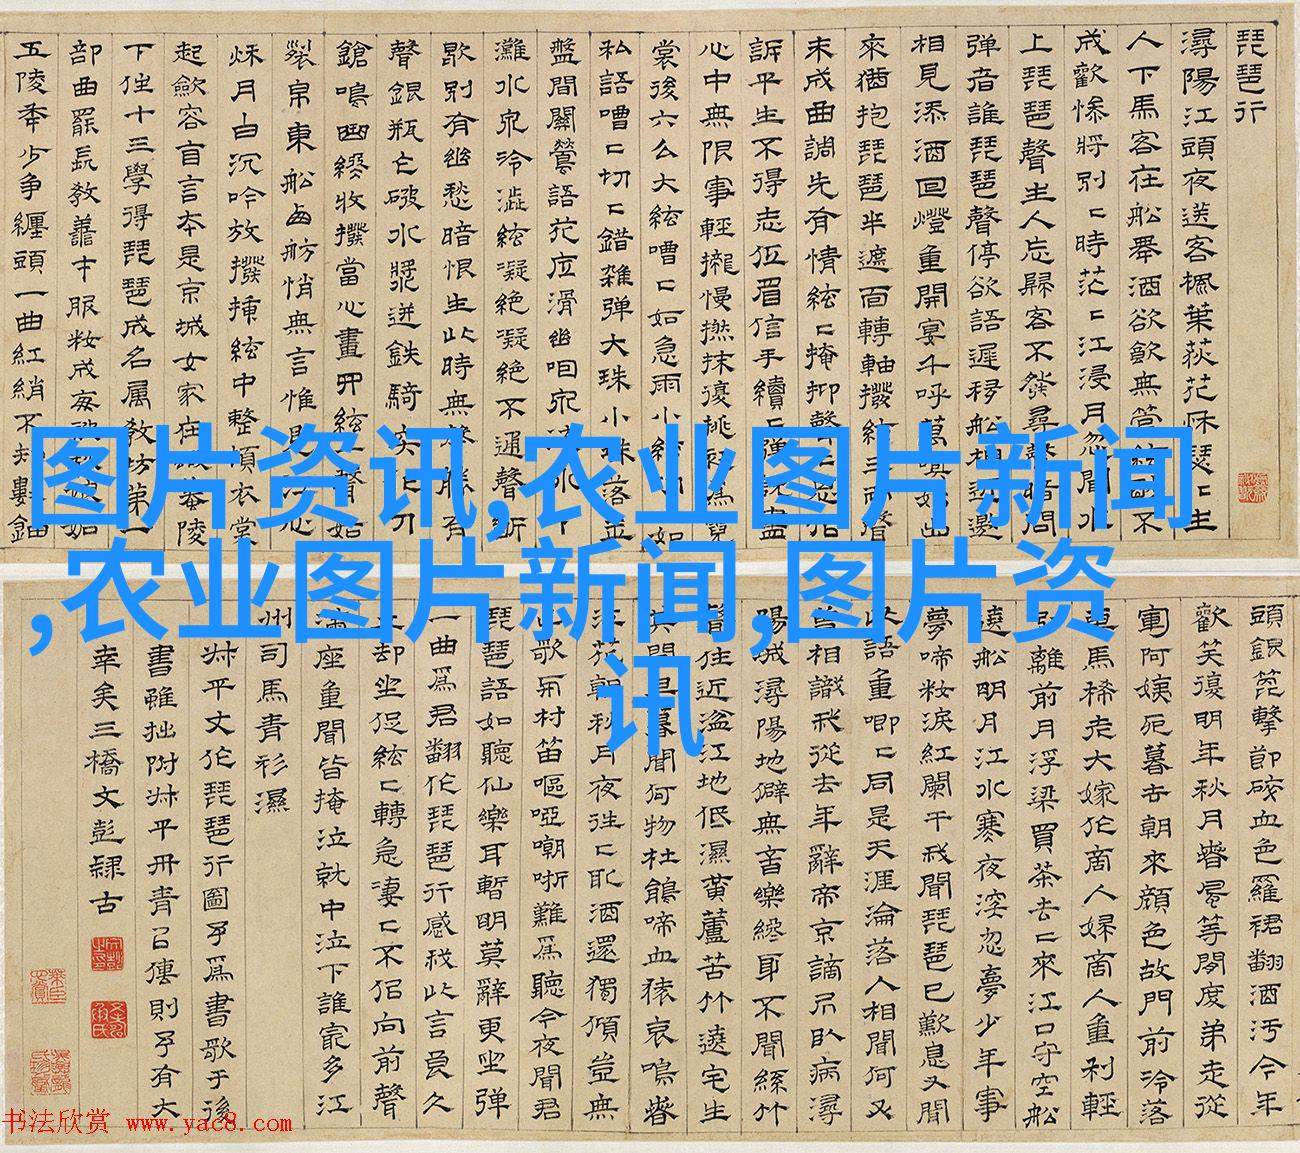 琵琶行
潯陽江頭夜送客楓葉荻花秋瑟〻主
人下馬客在船舉酒欲飲無管絃不
成歡慘將別〻時茫〻江浸月忽聞水
上琵琶聲主人忘歸客不發尋聲暗問
彈者誰琵琶聲停欲語遲移船相近邀
相見添酒回燈重開宴千呼萬喚始出
來猶抱琵琶半遮面轉軸撥絃三兩聲
未成曲調先有情絃〻掩抑聲〻思似
訴平生不得志低眉信手續〻彈說盡
心中無限事輕攏慢撚抹復挑初爲霓
裳後六么大絃嘈〻如急雨小絃切〻如
私語嘈〻切〻錯雜彈大珠小珠落玉
盤間關鶯語花底滑幽咽泉流氷下
灘水泉冷澁絃凝絕凝絕不通聲漸
歇別有幽愁暗恨生此時無聲勝有
聲銀瓶乍破水漿迸鐵騎突出刀
鎗鳴曲終收撥當心畫四絃一聲如
裂帛東船西舫悄無言惟見江心
秋月白沉吟放撥插絃中整頓衣裳
起斂容自言本是京城女家在蝦蟇陵
下住十三學得琵琶成名屬教坊第一
部曲罷長教善才服妝成每被秋娘妬
五陵年少爭纏頭一曲紅綃不知數鈿
頭銀篦擊節碎血色羅裙翻酒汚今年
歡笑復明年秋月春風等閒度弟走從
軍阿姨死暮去朝來顏色故門前冷落
車馬稀老大嫁作商人婦商人重利輕
別離前月浮梁買茶去〻來江口守空船
遶船明月江水寒夜深忽夢少年事
夢啼妝淚紅闌干我聞琵琶已歎息又聞
此語重唧〻同是天涯淪落人相聞何必
曾相識我從去年辭帝京謫居臥病潯
陽城潯陽地僻無音樂終年不聞絲竹
聲住近湓江地低濕黃蘆苦竹遶宅生
其間旦暮聞何物杜鵑啼血猿哀鳴春
江花朝秋月夜往〻取酒還獨傾豈無
山歌與村笛嘔啞嘲哳難爲聽今夜聞君
琵琶語如聽仙樂耳暫明莫辭更坐彈
一曲爲君翻作琵琶行感我此言良久
立却坐促絃〻轉急淒〻不似向前聲
滿座重聞皆掩泣就中泣下誰寃多江
州司馬青衫濕
叔平丈作琵琶行圖予爲書歌于後
書雖拙附叔平丹青以傳則予有大
幸矣三橋文彭隸古
图片资讯,农业图片新闻
,农业图片新闻,图片资
讯
书法欣赏 www.yac8.com